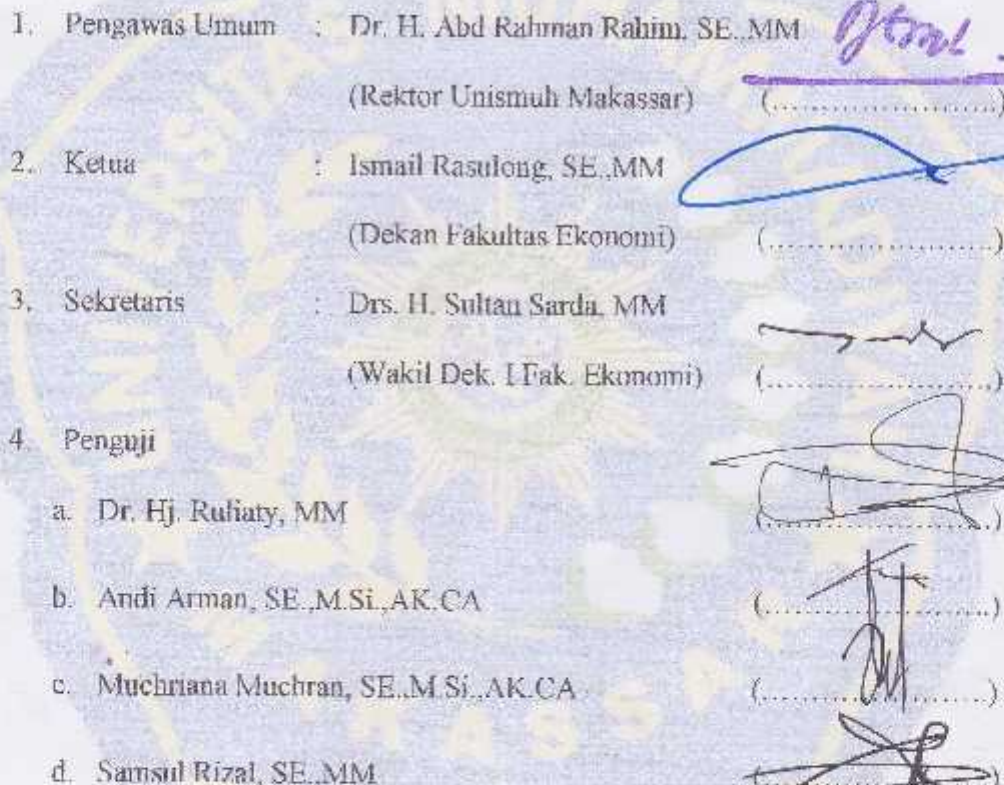 1. Pengawas Umum : Dr. H. Abd Rahman Rahim, SE.,MM
(Rektor Unismuh Makassar) (......................)
2. Ketua : Ismail Rasulong, SE.,MM
(Dekan Fakultas Ekonomi) (......................)
3. Sekretaris : Drs. H. Sultan Sarda, MM
(Wakil Dek. I Fak. Ekonomi) (......................)
4. Penguji
a. Dr. Hj. Ruliaty, MM (......................)
b. Andi Arman, SE.,M.Si.,AK.CA (......................)
c. Muchriana Muchran, SE.,M.Si.,AK.CA (......................)
d. Samsul Rizal, SE.,MM (......................)